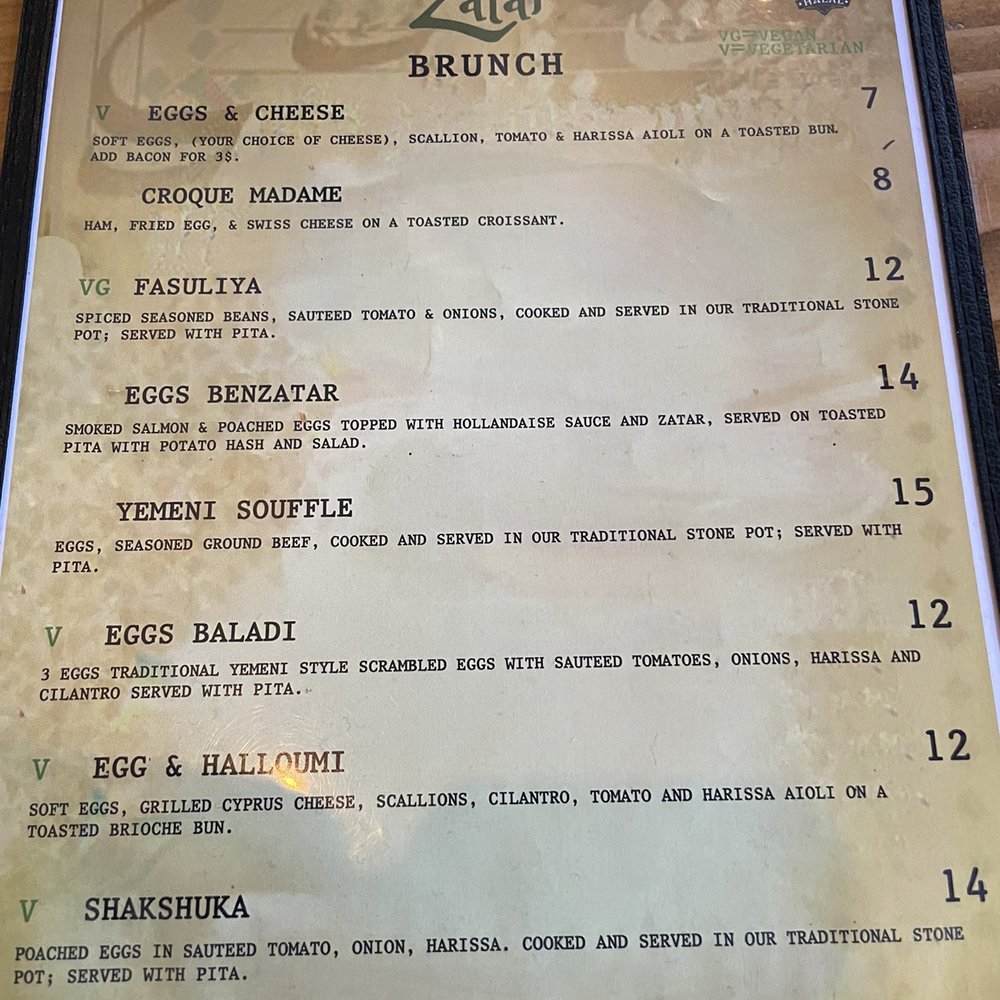 Zatar
HALAL
BRUNCH
VG=VEGAN
V=VEGETARIAN
V EGGS & CHEESE 7
SOFT EGGS, (YOUR CHOICE OF CHEESE), SCALLION, TOMATO & HARISSA AIOLI ON A TOASTED BUN.
ADD BACON FOR 3$.
CROQUE MADAME 8
HAM, FRIED EGG, & SWISS CHEESE ON A TOASTED CROISSANT.
VG FASULIYA 12
SPICED SEASONED BEANS, SAUTEED TOMATO & ONIONS, COOKED AND SERVED IN OUR TRADITIONAL STONE
POT; SERVED WITH PITA.
EGGS BENZATAR 14
SMOKED SALMON & POACHED EGGS TOPPED WITH HOLLANDAISE SAUCE AND ZATAR, SERVED ON TOASTED
PITA WITH POTATO HASH AND SALAD.
YEMENI SOUFFLE 15
EGGS, SEASONED GROUND BEEF, COOKED AND SERVED IN OUR TRADITIONAL STONE POT; SERVED WITH
PITA.
V EGGS BALADI 12
3 EGGS TRADITIONAL YEMENI STYLE SCRAMBLED EGGS WITH SAUTEED TOMATOES, ONIONS, HARISSA AND
CILANTRO SERVED WITH PITA.
V EGG & HALLOUMI 12
SOFT EGGS, GRILLED CYPRUS CHEESE, SCALLIONS, CILANTRO, TOMATO AND HARISSA AIOLI ON A
TOASTED BRIOCHE BUN.
V SHAKSHUKA 14
POACHED EGGS IN SAUTEED TOMATO, ONION, HARISSA. COOKED AND SERVED IN OUR TRADITIONAL STONE
POT; SERVED WITH PITA.